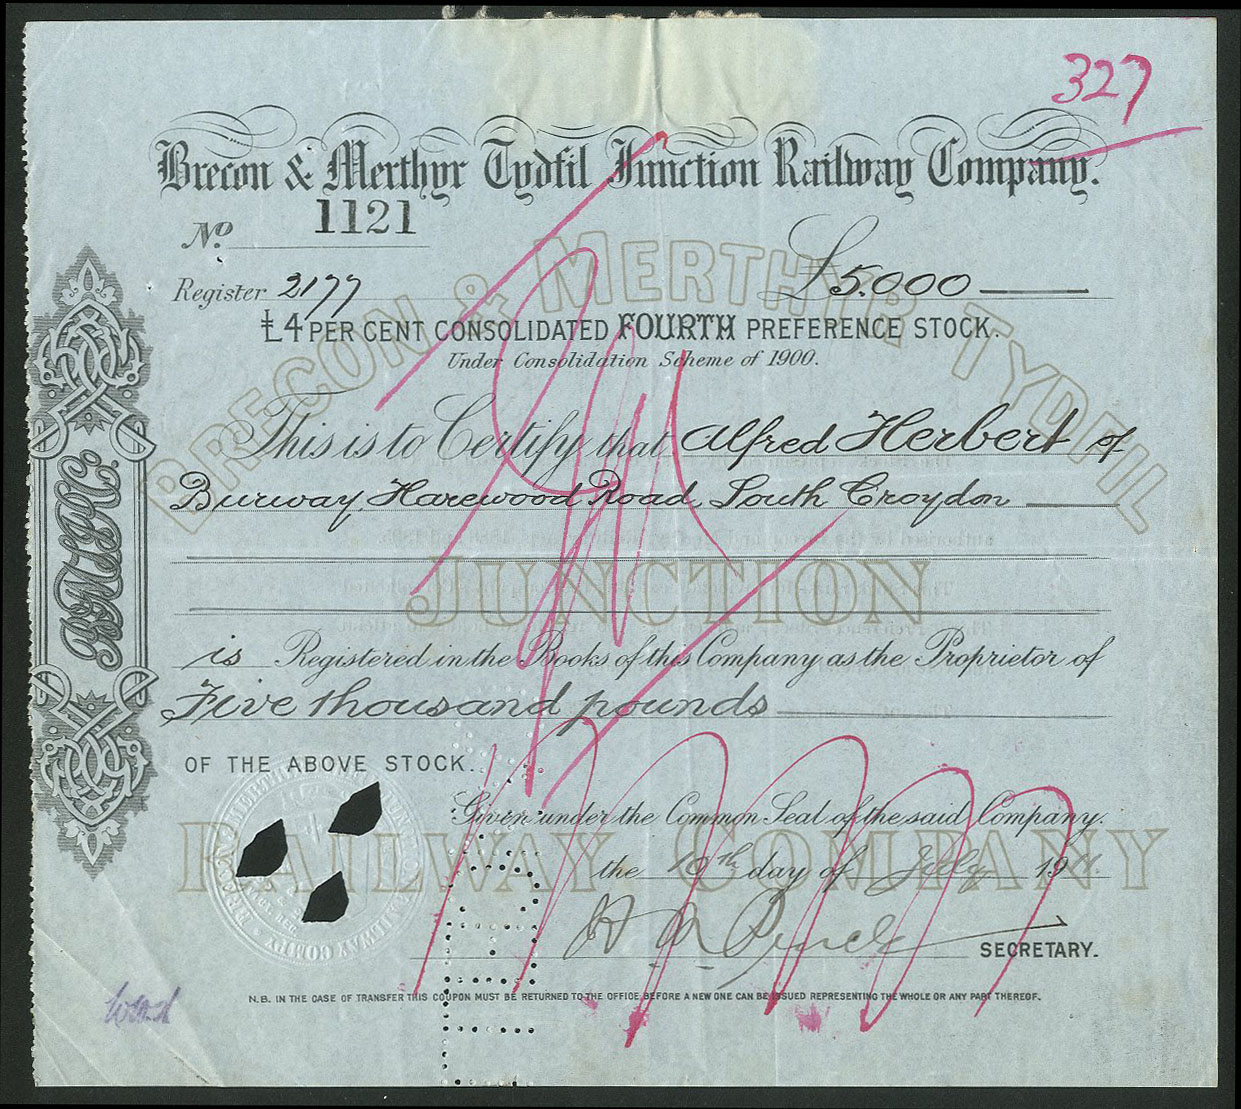 327
Brecon & Merthyr Tydfil Junction Railway Company.
No. 1121
£5.000
Register 2177
£4 PER CENT CONSOLIDATED FOURTH PREFERENCE STOCK.
Under Consolidation Scheme of 1900.
This is to Certify that Alfred Herbert of
Burway, Harewood Road, South Croydon
is Registered in the Books of this Company as the Proprietor of
Five thousand pounds
OF THE ABOVE STOCK.
Given under the Common Seal of the said Company.
the 10th day of July 19
SECRETARY.
N.B. IN THE CASE OF TRANSFER THIS COUPON MUST BE RETURNED TO THE OFFICE BEFORE A NEW ONE CAN BE ISSUED REPRESENTING THE WHOLE OR ANY PART THEREOF.
BRECON & MERTHYR TYDFIL
JUNCTION
RAILWAY COMPANY